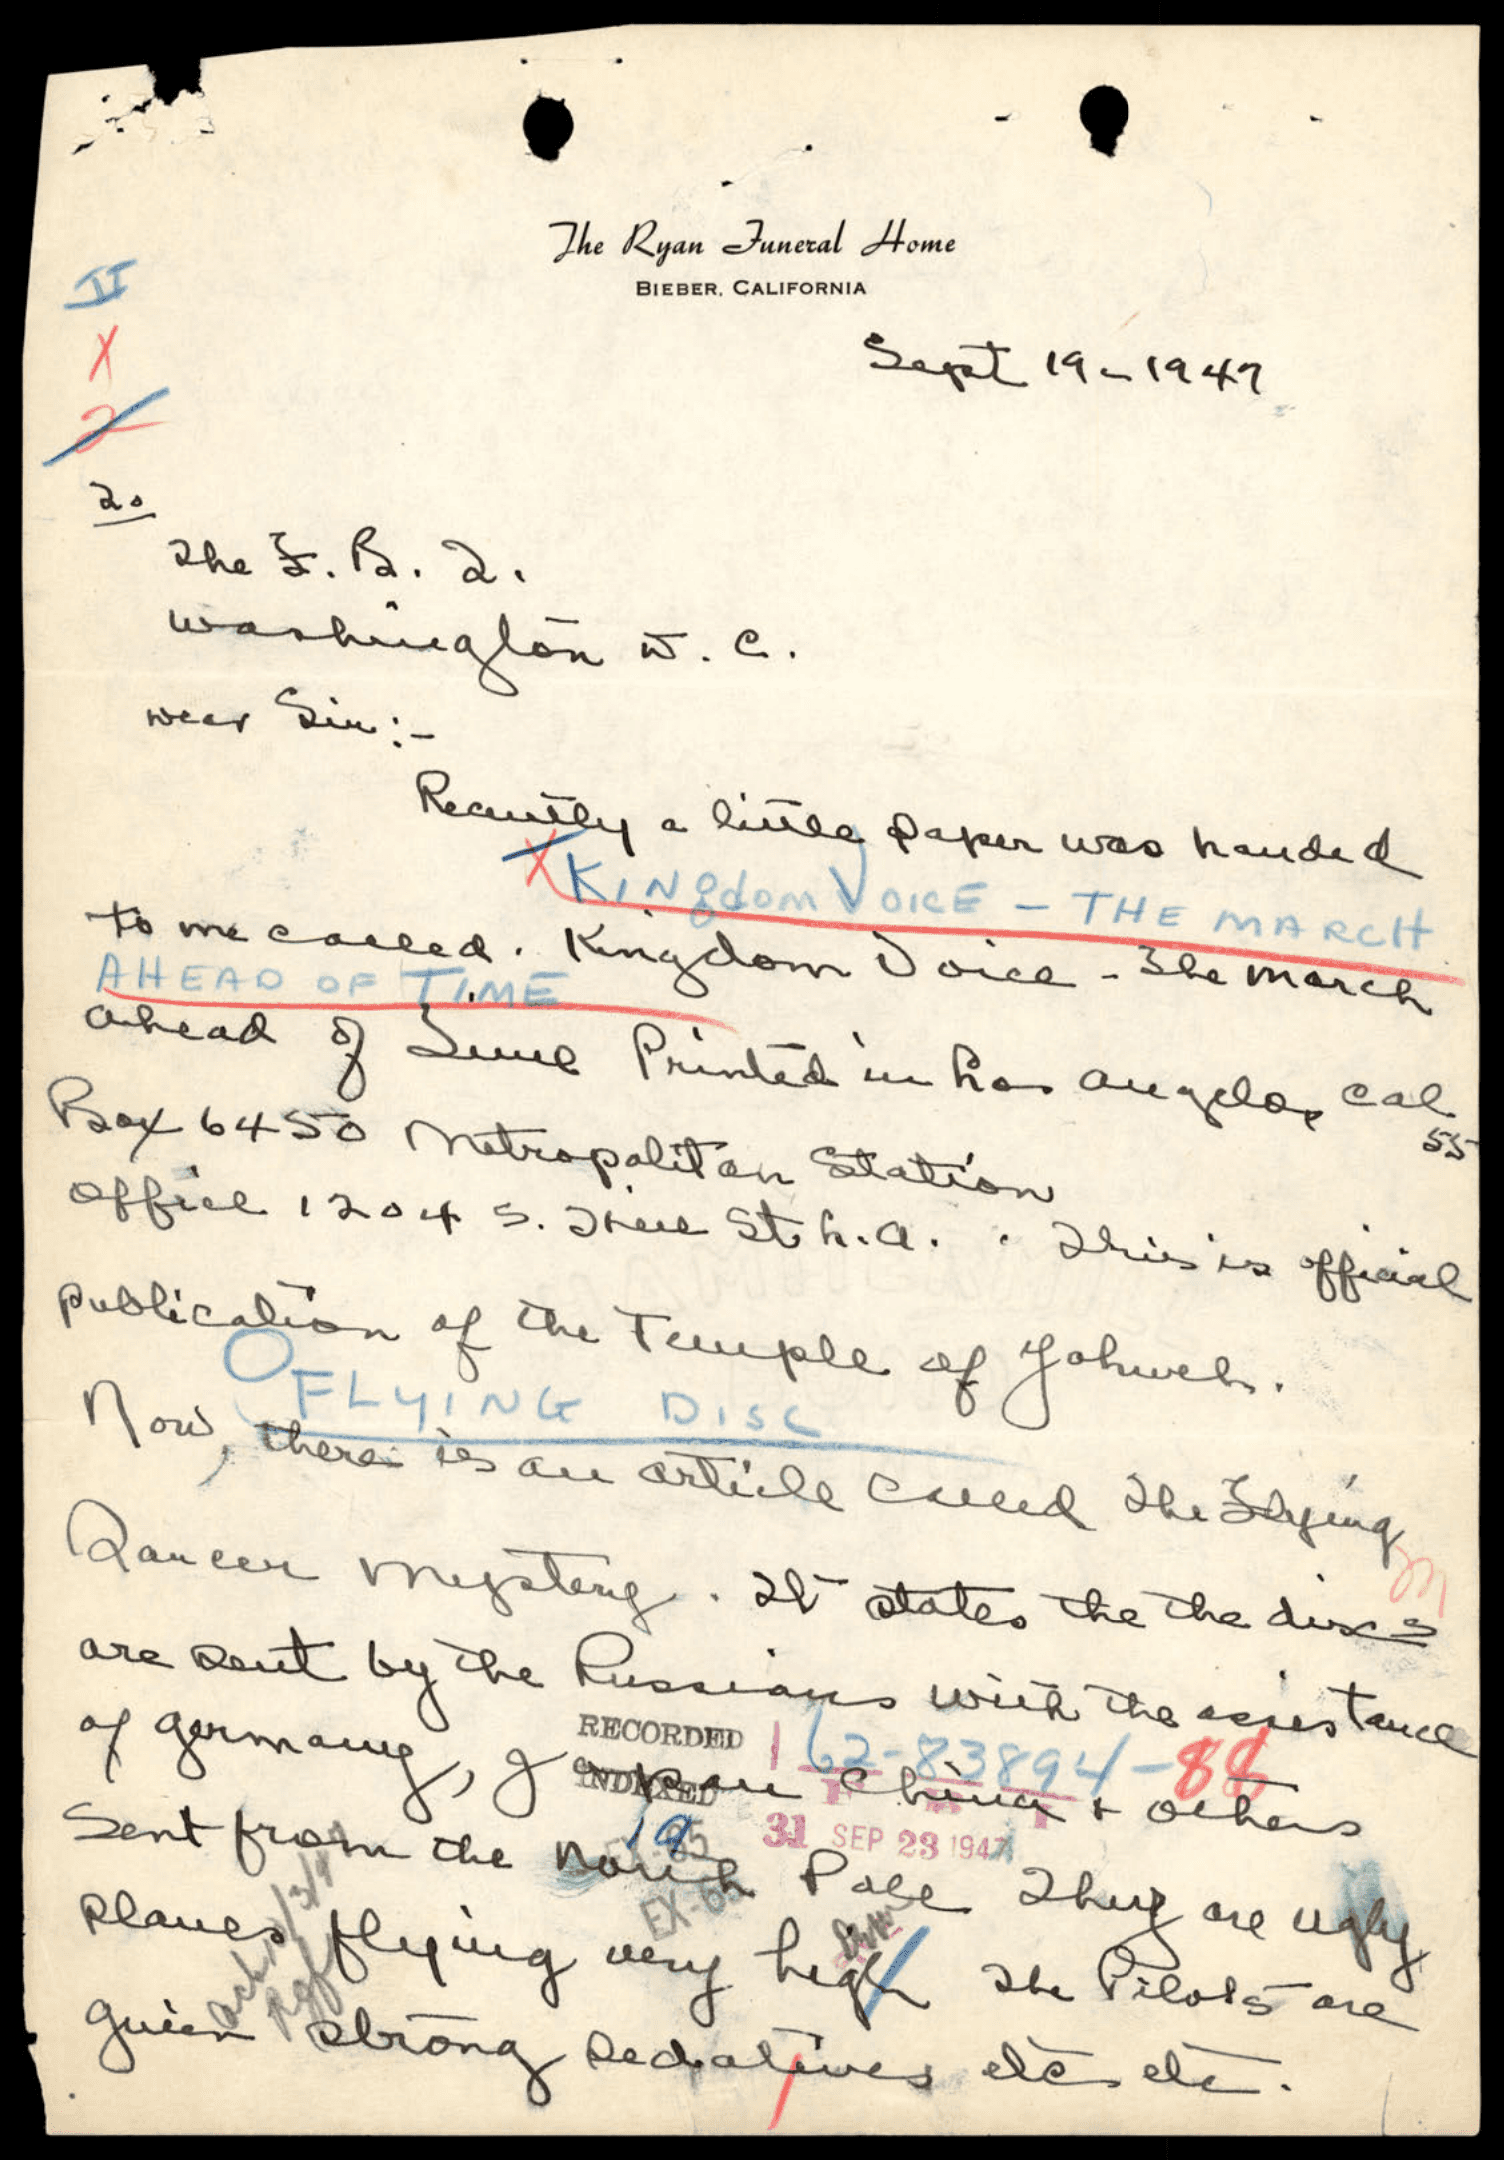 The Ryan Funeral Home
BIEBER, CALIFORNIA
Sept 19 - 1947
II
X
2
To
The F. B. I.
Washington D. C.
Dear Sir:-
Recently a little paper was handed
X KINgdom VOICE - THE MARCH
to me called. Kingdom Voice - The March
AHEAD OF TIME
ahead of Time Printed in Los Angeles, Cal
55
Box 6450 Metropolitan Station
Office 1204 S. Hill St L.A. . This is official
publication of the Temple of Yahweh.
FLYING DISC
Now, there is an article called The Flying
Saucer Mystery. It states the the discs
are sent by the Russians with the assistance
RECORDED 162-83894-88
of Germany, Japan China & others
INDEXED
31 SEP 23 1947
19
EX-65
Sent from the North Pole They are ugly
planes flying very high The Pilots are
given strong sedatives etc etc.